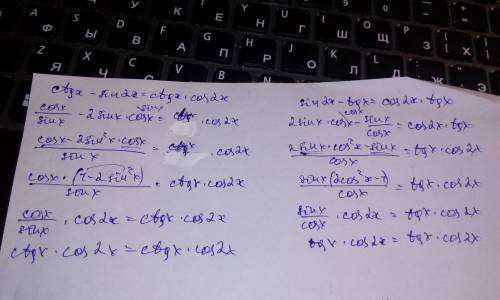 ctgx - sin2x = ctgx · cos2x
cosx/sinx - 2sinx·cosx^{\sinx} = ctgx · cos2x
(cosx - 2sin²x·cosx)/sinx = ctgx · cos2x
cosx·(1 - 2sin²x)/sinx = ctgx·cos2x
cosx/sinx · cos2x = ctgx·cos2x
ctgx · cos2x = ctgx·cos2x
sin2x - tgx = cos2x · tgx
2sinx·cosx^{\cosx} - sinx/cosx = cos2x·tgx
(2sinx·cos²x - sinx)/cosx = tgx·cos2x
sinx(2cos²x - 1)/cosx = tgx·cos2x
sinx/cosx · cos2x = tgx·cos2x
tgx·cos2x = tgx·cos2x